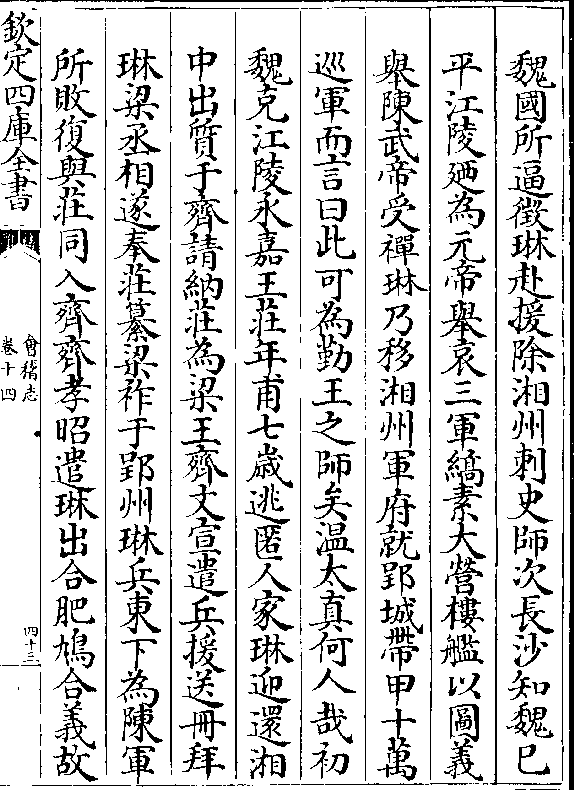 魏國所逼徵琳赴援除湘州刺史師次長沙知魏已
平江陵廼為元帝舉哀三軍縞素大營樓艦以圖義
舉陳武帝受禪琳乃移湘州軍府就郢城帶甲十萬
巡軍而言曰此可為勤王之師矣温太真何人哉初
魏克江陵永嘉王莊年甫七歳逃匿人家琳迎還湘
中出質于齊請納莊為梁王齊文宣遣兵援送冊拜
琳梁丞相遂奉莊纂梁祚于郢州琳兵東下為陳軍
所敗復與莊同入齊齊孝昭遣琳出合肥鳩合義故
欽定四庫全書
會稽志
卷十四
四十三